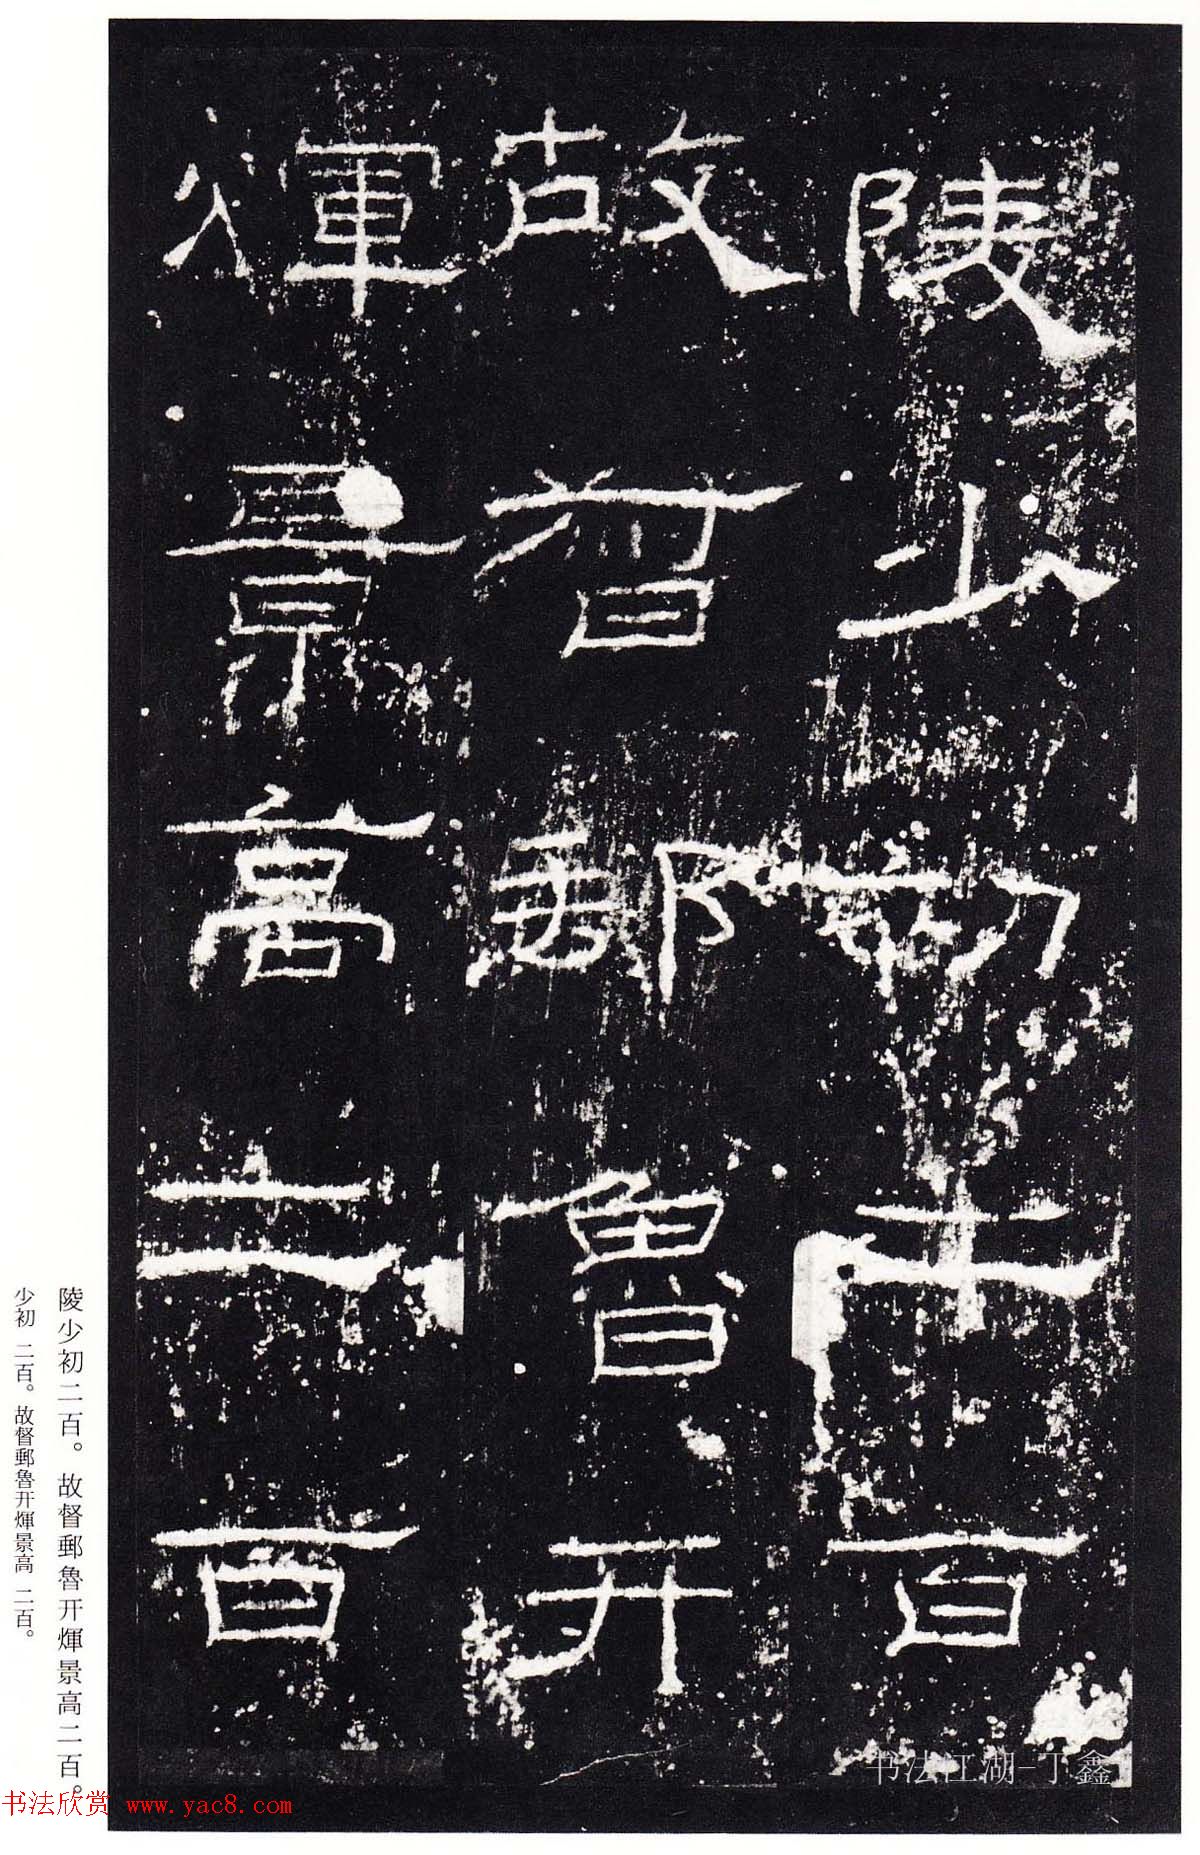 陵少初二百
故督郵魯开
煇景高二百
陵少初二百。故督郵魯开煇景高二百。
少初 二百。故督郵魯开煇景高 二百。
书法江湖-丁鑫
书法欣赏 www.yac8.com